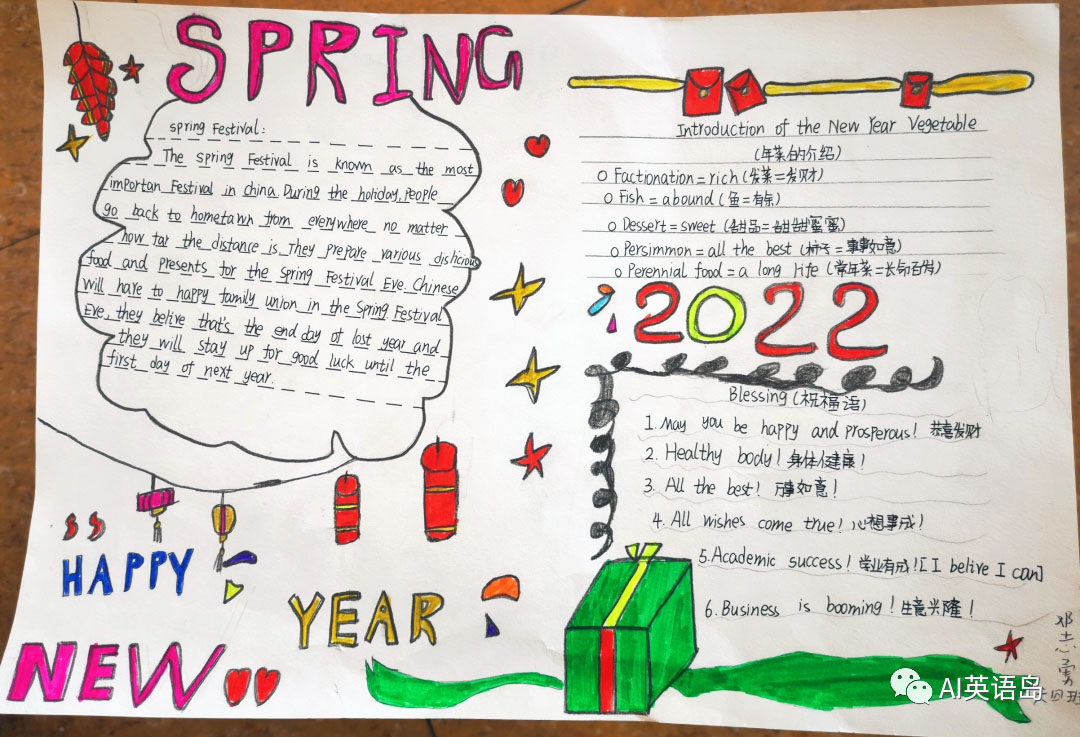 SPRING
spring Festival:
The spring Festival is known as the most
importan Festival in china. During the holiday, People
go back to hometawn from everywhere no matter
how far the distance is. They prepare various dislicious
food and presents for the spring Festival Eve. Chinese
will have to happy family union in the Spring Festival
Eve, they belive that's the end day of last year and
they will stay up for good luck until the
first day of next year.
HAPPY
NEW
YEAR
Introduction of the New Year Vegetable
(年菜的介绍)
o Factionation = rich (发菜=发财)
o Fish = abound (鱼=有余)
o Dessert = sweet (甜品=甜甜蜜蜜)
o Persimmon = all the best (柿子=事事如意)
o Perennial food = a long life (常年菜=长命百岁)
2022
Blessing (祝福语)
1. May you be happy and prosperous! 恭喜发财
2. Healthy body! 身体健康!
3. All the best! 万事如意!
4. All wishes come true! 心想事成!
5. Academic success! 学业有成! [I belive I can]
6. Business is booming! 生意兴隆!
邓志勇
AI英语岛